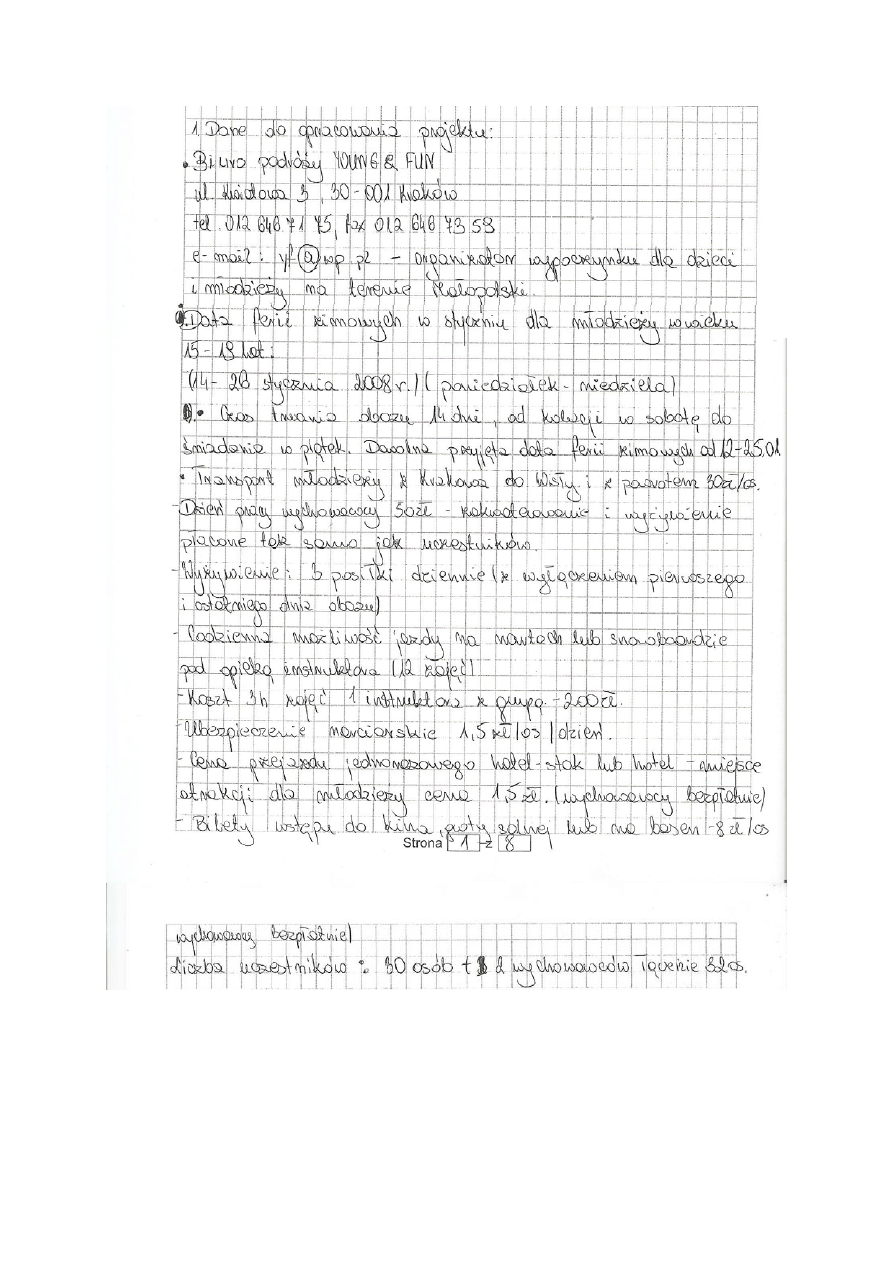 1. Dane do opracowania projektu:
• Biuro podróży YOUNG & FUN
ul. Kwiatowa 3, 30-001 Kraków
tel. 012 646 71 75, fax 012 646 73 59
e-mail: yf@wp.pl - organizator wypoczynku dla dzieci
i młodzieży na terenie Małopolski.
Data ferii zimowych w styczniu dla młodzieży w wieku
15-19 lat:
(14-26 stycznia 2008 r.) (poniedziałek - niedziela)
• Czas trwania obozu 14 dni, od kolacji w sobotę do
śniadania w piątek. Dowolna przyjęta data ferii zimowych od 12-25.01
• Transport młodzieży z Krakowa do Wisły i z powrotem 30zł/os.
- Dzień pracy wychowawcy 50zł - zakwaterowanie i wyżywienie
płacone tak samo jak uczestników.
- Wyżywienie: 3 posiłki dziennie (z wyłączeniem pierwszego
i ostatniego dnia obozu)
- Codzienna możliwość jazdy na nartach lub snowboardzie
pod opieką instruktora (12 zajęć)
- Koszt 3h zajęć 1 instruktora z grupą - 200zł.
- Ubezpieczenie narciarskie 1,5 zł/os/dzień.
- Cena przejazdu jednorazowego hotel-stok lub hotel - miejsce
atrakcji dla młodzieży cena 1,5 zł. (wychowawcy bezpłatnie)
- Bilety wstępu do kina, groty solnej lub na basen - 8 zł/os
Strona 1 z 8
wychowawcy bezpłatnie)
Liczba uczestników: 30 osób + 2 wychowawców łącznie 32os.